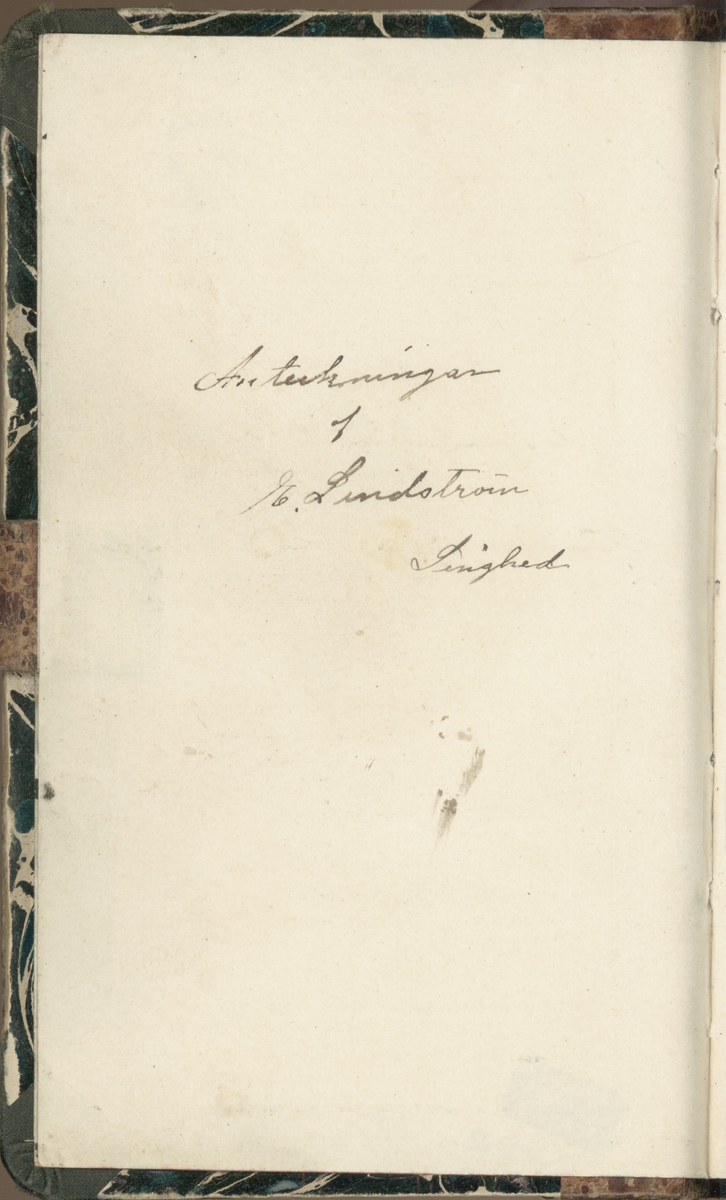 Anteckningar
af
E. Lindström
Linghed